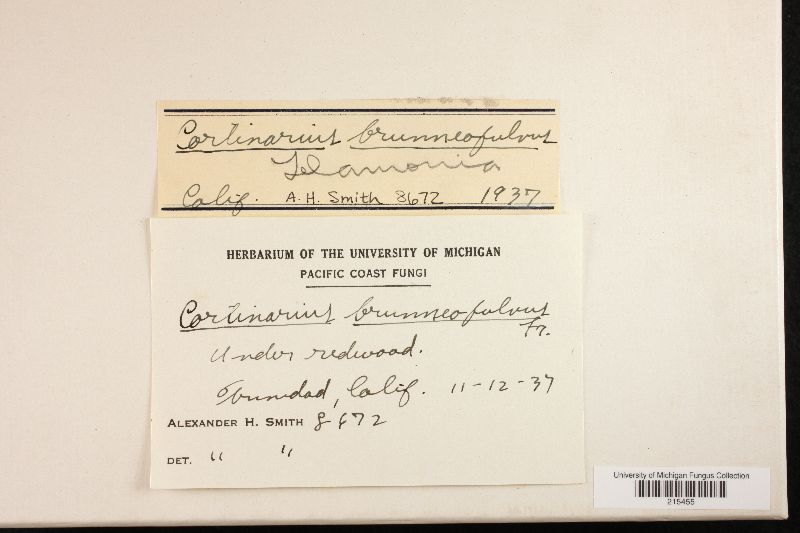 Cortinarius brunneofulvus
Telamonia
Calif. A. H. Smith 8672 1937
HERBARIUM OF THE UNIVERSITY OF MICHIGAN
PACIFIC COAST FUNGI
Cortinarius brunneofulvus
Fr.
Under redwood.
Trinidad, Calif. 11-12-37
ALEXANDER H. SMITH 8672
DET. " "
University of Michigan Fungus Collection
215455